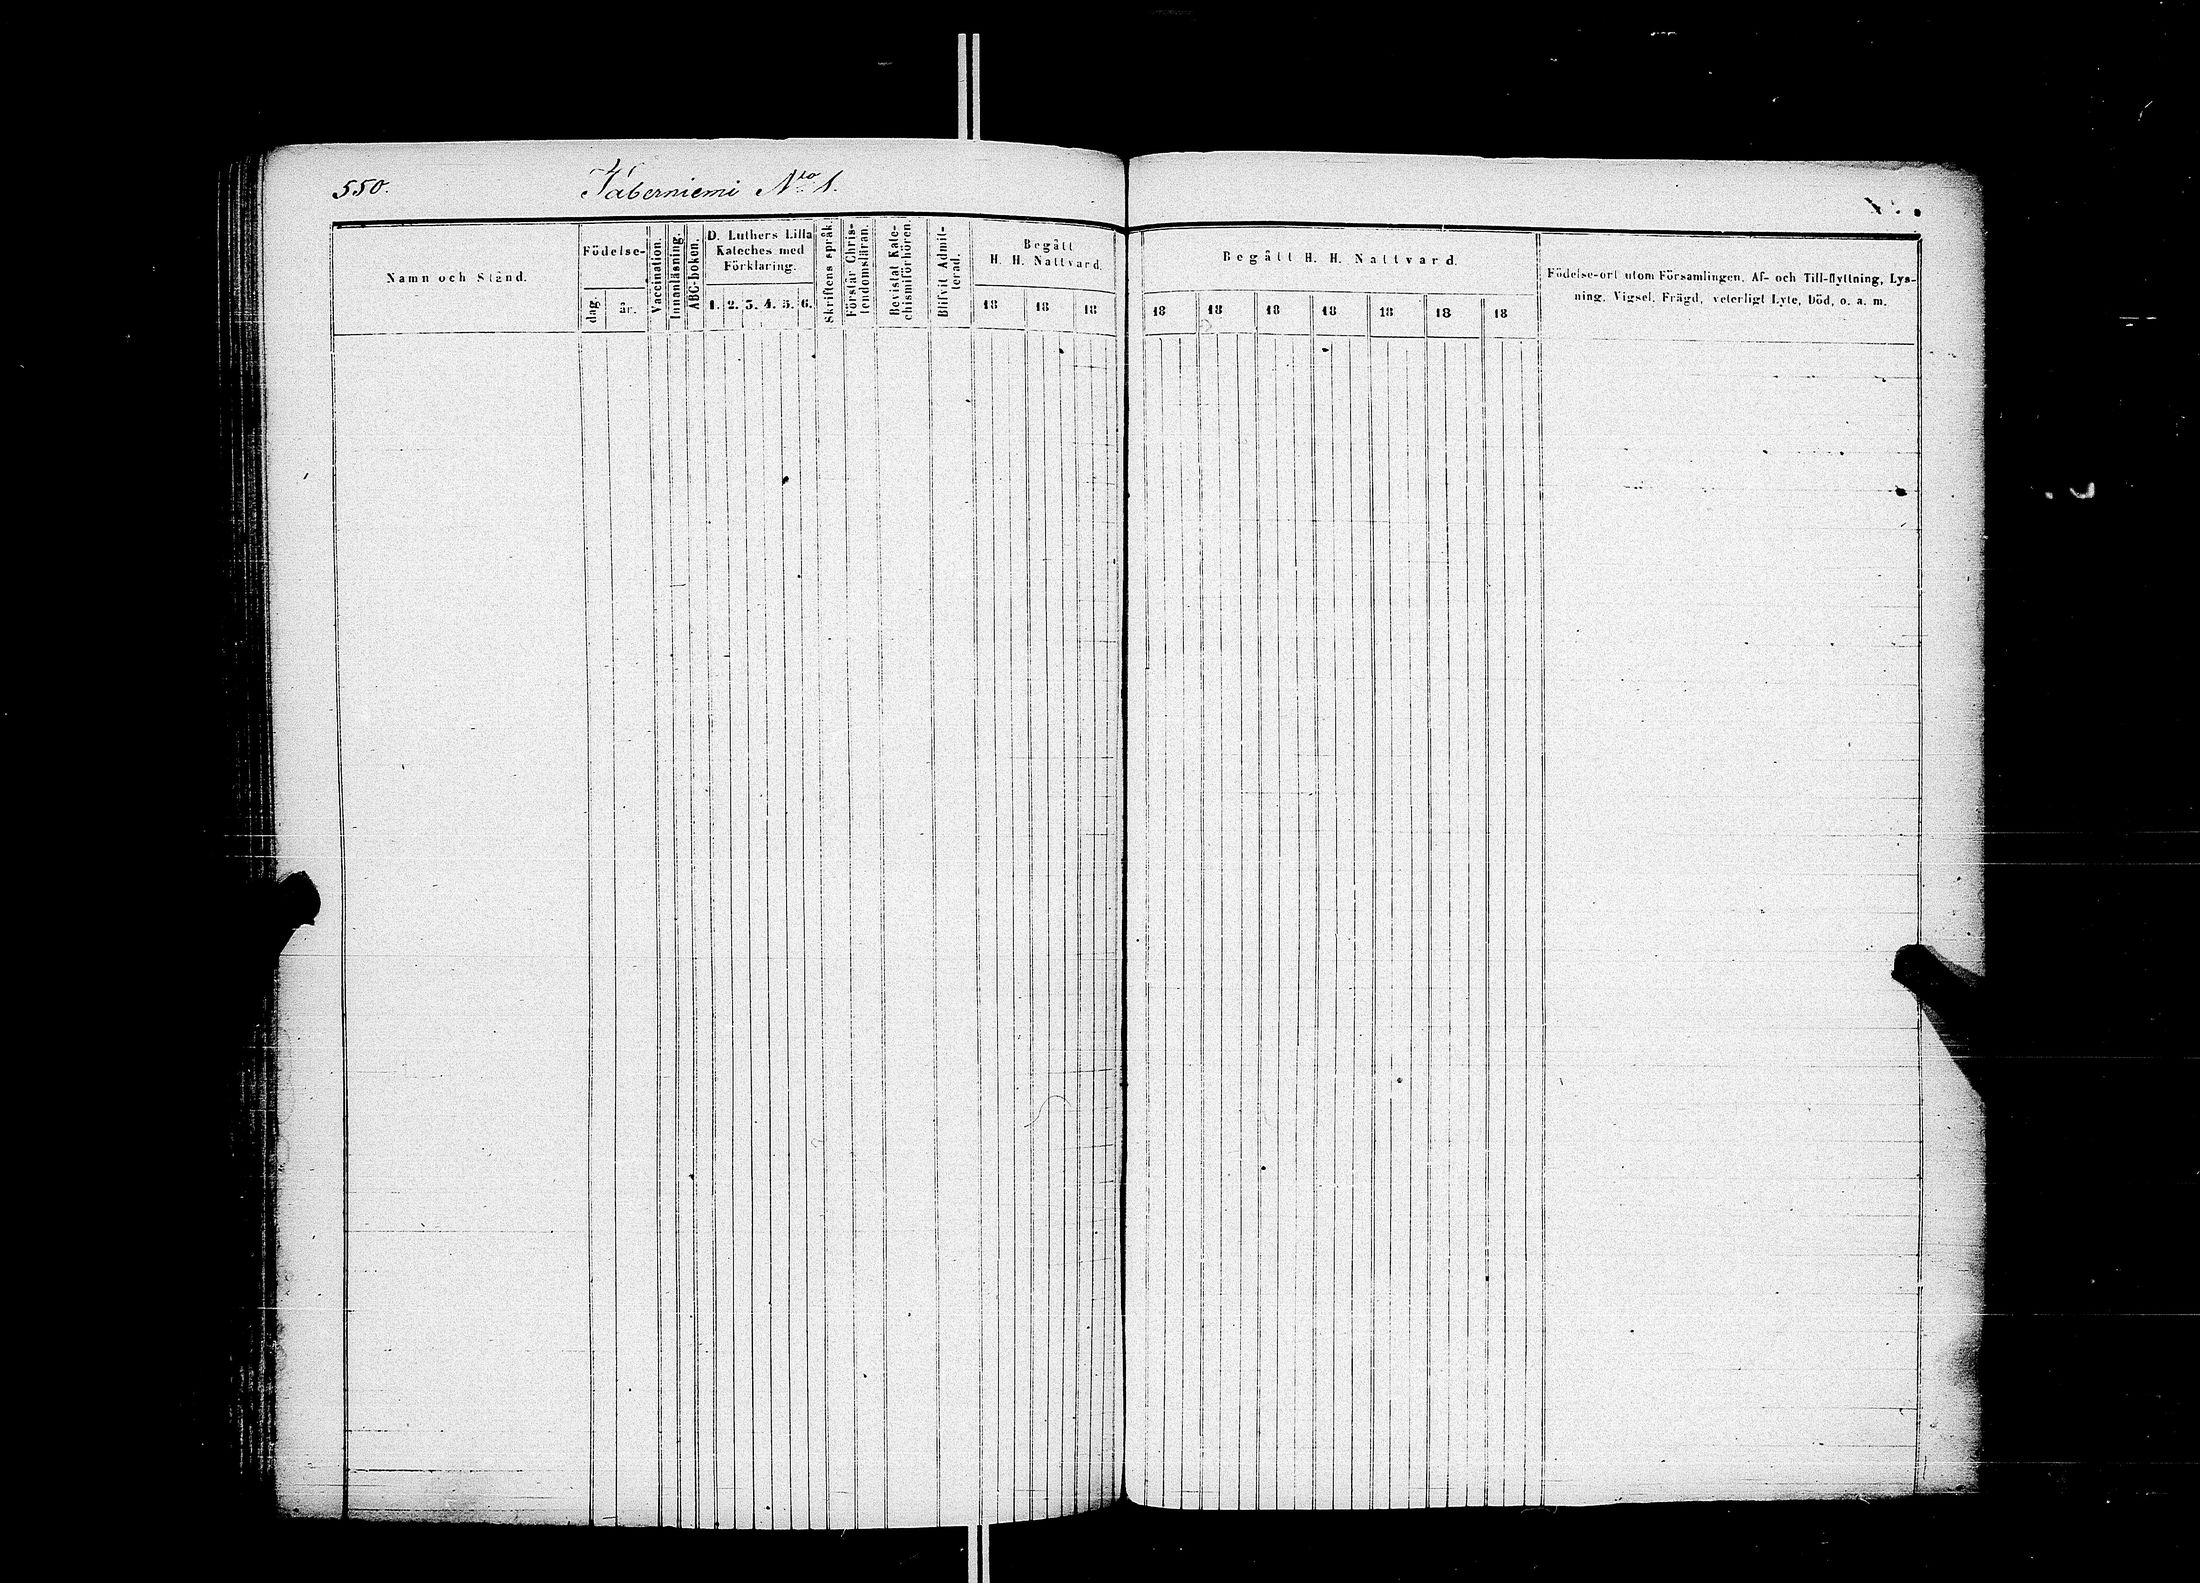 550. Taberniemi N:to 1.
Namn och Stånd.
Födelse-
dag. år.
Vaccination.
Innanläsning.
ABC-boken.
D. Luthers Lilla
Kateches med
Förklaring.
1. 2. 3. 4. 5. 6.
Skriftens språk.
Förstår Chris-
tendomsläran.
Bevistat Kate-
chismiförhören.
Blifvit Admit-
terad.
Begått
H. H. Nattvard.
18 18 18
Begått H. H. Nattvard.
18 18 18 18 18 18 18
Födelse-ort utom Församlingen, Af- och Till-flyttning, Lys-
ning, Vigsel, Frägd, veterligt Lyte, Död, o. a. m.